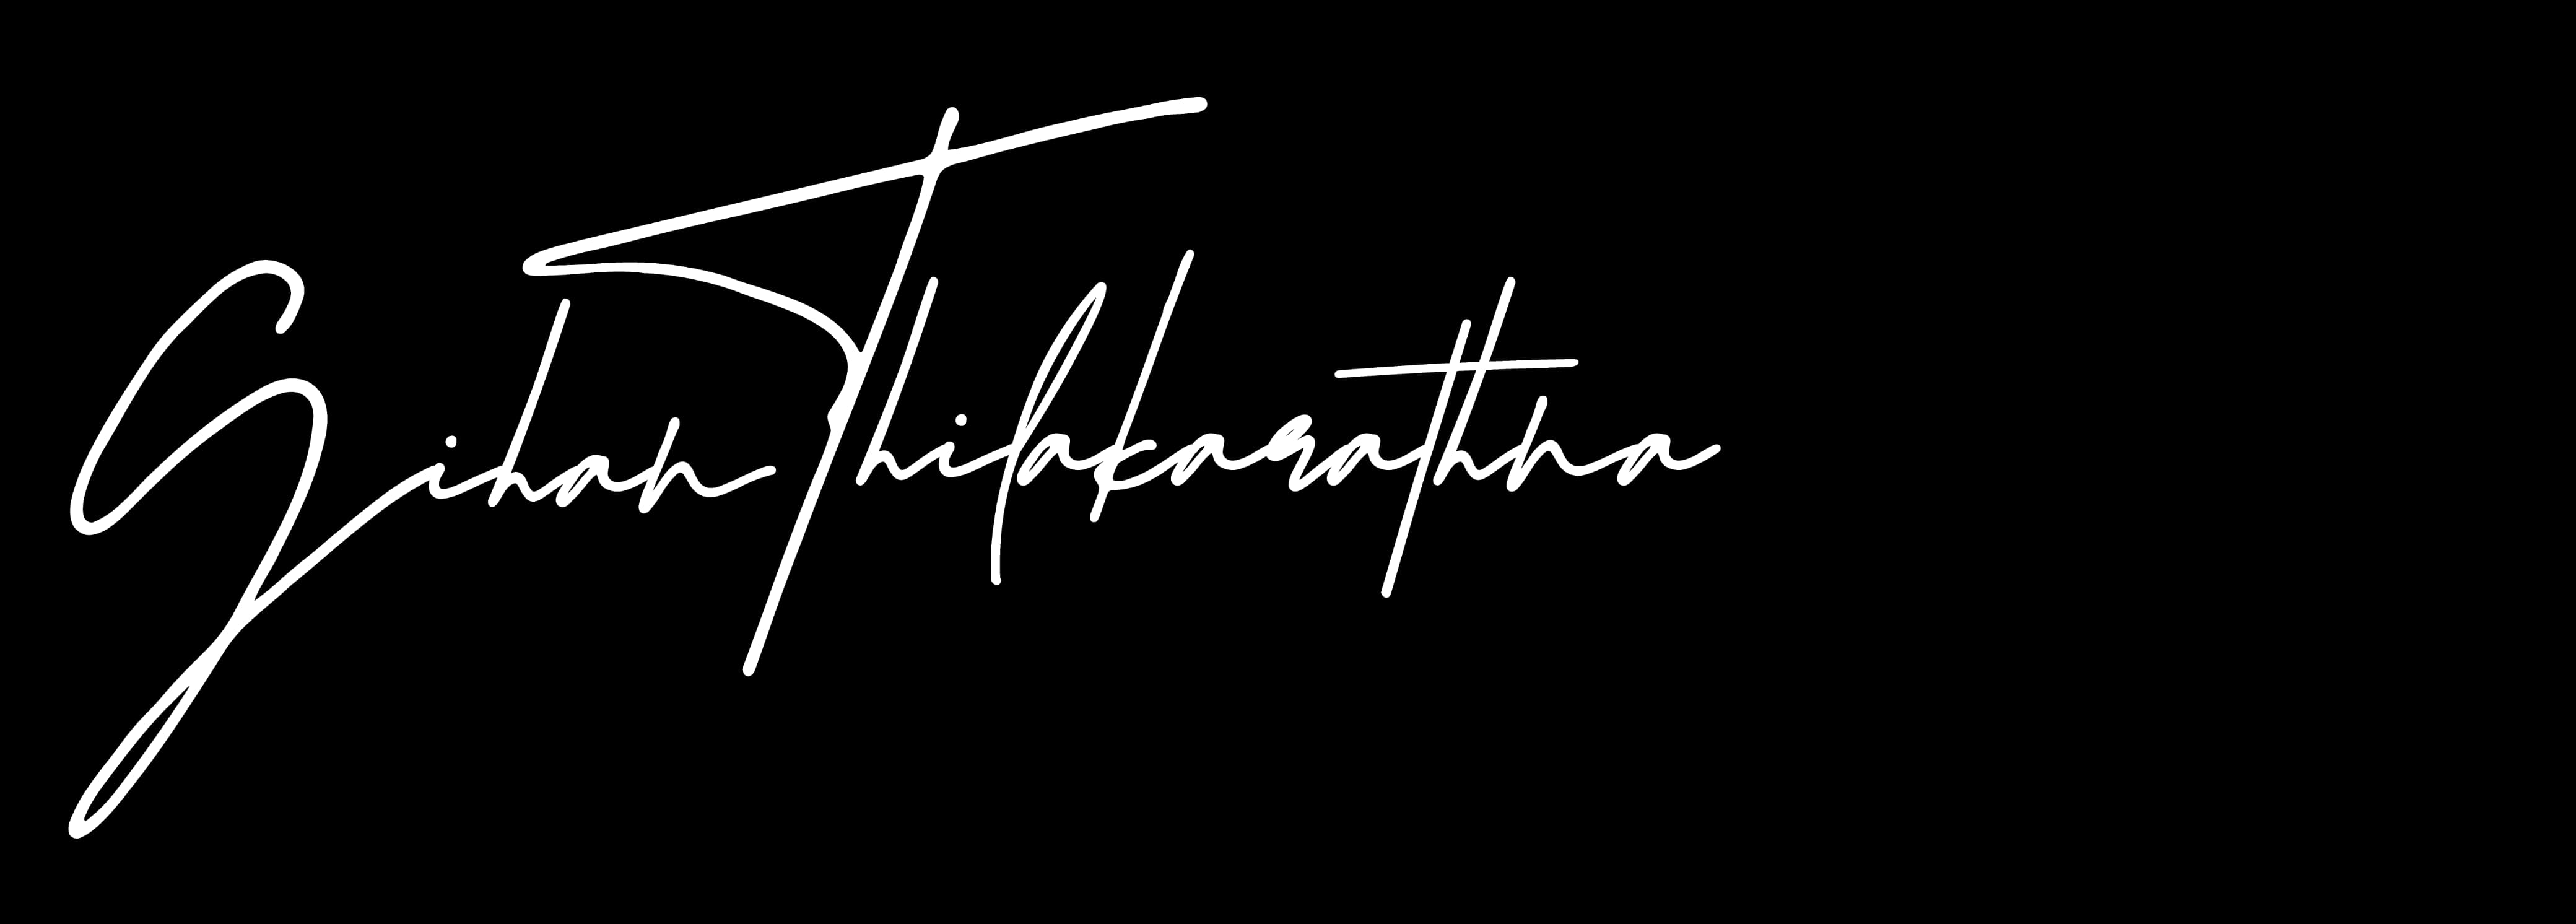 Gihan Thilakarathna